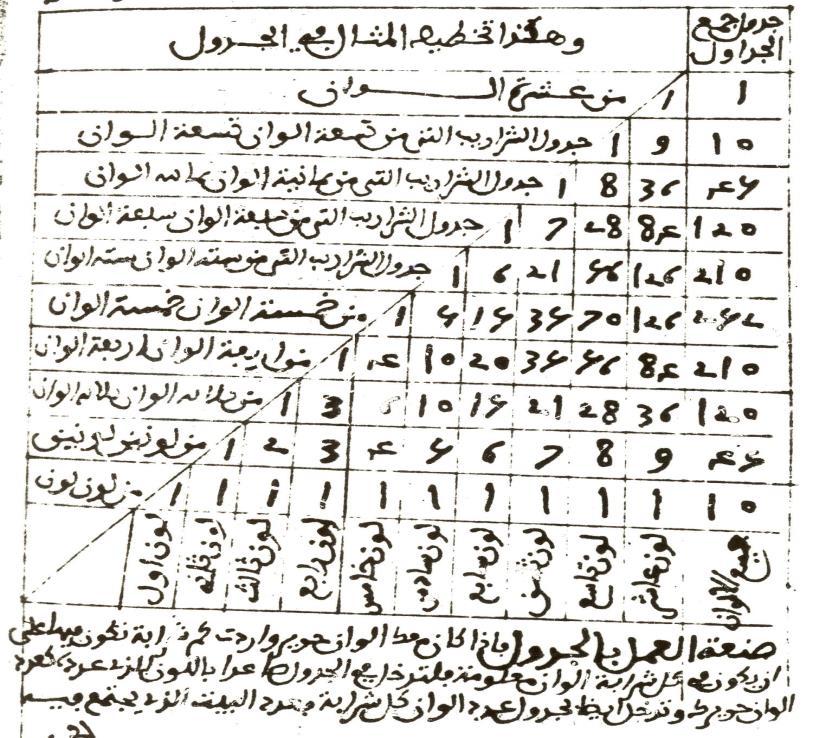 جدول جمع الجداول وهكذا تخطيط المثال في الجدول
1 1 من عشرة الوان
10 9 1 جدول الشراريب التي من تسعة الوان تسعة الوان
45 36 8 1 جدول الشراريب التي من ثمانية الوان ثمانية الوان
120 84 28 7 1 جدول الشراريب التي من سبعة الوان سبعة الوان
210 126 56 21 6 1 جدول الشراريب التي من ستة الوان ستة الوان
252 126 70 35 15 5 1 من خمسة الوان خمسة الوان
210 84 56 35 20 10 4 1 من اربعة الوان اربعة الوان
120 36 28 21 15 10 6 3 1 من ثلاثة الوان ثلاثة الوان
45 9 8 7 6 5 4 3 2 1 من لونين لونين
10 1 1 1 1 1 1 1 1 1 1 من لون لون
جميع الالوان لون عاشر لون تاسع لون ثامن لون سابع لون سادس لون خامس لون رابع لون ثالث لون ثاني لون اول
صنعة العمل بالجدول فاذا كان معك الوان حرير واردت كم شرابة تكون منها على
ان يكون في كل شرابة الوان معلومة فلتدخل في الجدول صاعدا باللون الذي عدده كعدد
الوان حريرك وتدخل ايضا بجدول عدد الوان كل شرابة وعدد البيت الذي يجتمع فيه